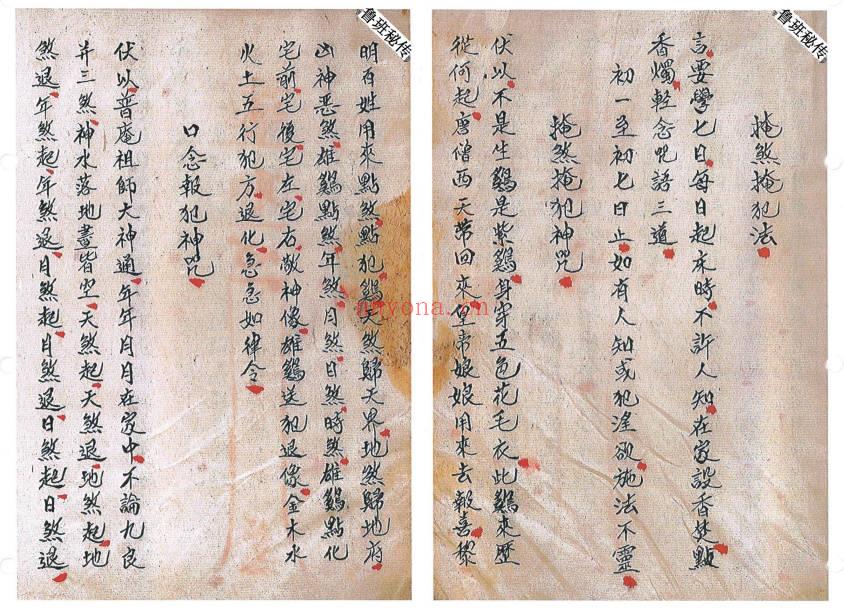 鲁班秘传
掩煞掩犯法
言要學七日每日起床時不許人知在家設香焚點
香燭輕念咒語三道
初一至初七日止如有人知或犯淫欲施法不靈
掩煞掩犯神咒
伏以不是生鷄是紫鷄身穿五色花毛衣此鷄來歷
從何起唐僧西天帶回來皇帝娘娘用來去報喜黎
鲁班秘传
明百姓用來點煞點犯鷄天煞歸天界地煞歸地府
凶神恶煞雄鷄點煞年煞月煞日煞時煞雄鷄點化
宅前宅後宅左宅右敵神像雄鷄送犯退像金木水
火土五行犯方退化急急如律令
口念報犯神咒
伏以普庵祖師大神通年年月月在家中不論九良
并三煞神水落地晝皆空天煞起天煞退地煞起地
煞退年煞起年煞退月煞起月煞退日煞起日煞退
anyona.cn